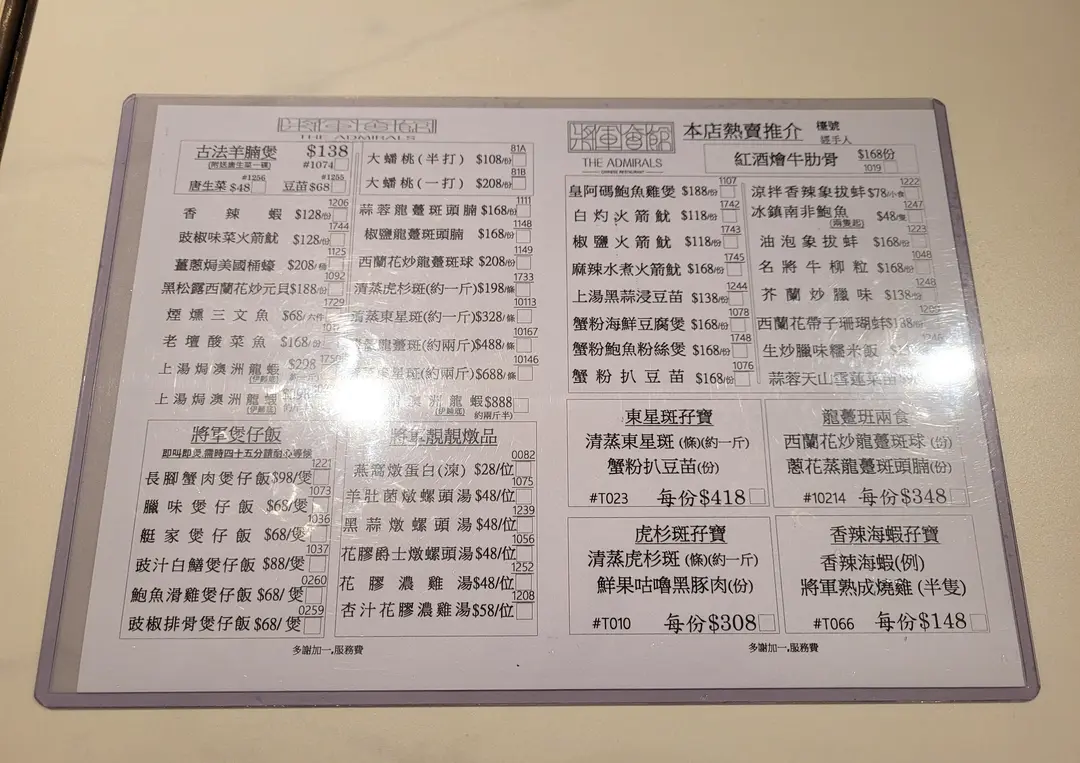 將軍會館
THE ADMIRALS
古法羊腩煲 $138
(附送唐生菜一碟) #1074
#1256 #1255
唐生菜 $48 豆苗 $68
大蟠桃(半打) $108/份 81A
大蟠桃(一打) $208/份 81B
香辣蝦 $128/份 1206
豉椒味菜火箭魷 $128/份 1744
薑蔥焗美國桶蠔 $208/桶 1125
黑松露西蘭花炒元貝 $188/份 1092
煙燻三文魚 $68/六件 1729
老壇酸菜魚 $168/份
上湯焗澳洲龍蝦 $298
(伊麵底)
上湯焗澳洲龍蝦
(伊麵底)
蒜蓉龍躉斑頭腩 $168/份 1111
椒鹽龍躉斑頭腩 $168/份 1148
西蘭花炒龍躉斑球 $208/份 1149
清蒸虎杉斑(約一斤) $198/條 1733
清蒸東星斑(約一斤) $328/條 10113
龍躉斑(約兩斤) $488/條 10167
東星斑(約兩斤) $688/條 10146
澳洲龍蝦 $888
(伊麵底) 約兩斤半)
將軍煲仔飯
即叫即煲,需時四十五分請耐心等候
長腳蟹肉煲仔飯 $98/煲 1221
臘味煲仔飯 $68/煲 1073
艇家煲仔飯 $68/煲 1036
豉汁白鱔煲仔飯 $88/煲 1037
鮑魚滑雞煲仔飯 $68/煲 0260
豉椒排骨煲仔飯 $68/煲 0259
將軍靚靚燉品
燕窩燉蛋白(凍) $28/位 0082
羊肚菌燉螺頭湯 $48/位 1075
黑蒜燉螺頭湯 $48/位 1239
花膠爵士燉螺頭湯 $48/位 1056
花膠濃雞湯 $48/位 1252
杏汁花膠濃雞湯 $58/位 1208
多謝加一服務費
將軍會館
THE ADMIRALS
CHINESE RESTAURANT
本店熱賣推介
檯號
經手人
紅酒燴牛肋骨 $168/份 1019
皇阿碼鮑魚雞煲 $188/份 1107
白灼火箭魷 $118/份 1742
椒鹽火箭魷 $118/份 1743
麻辣水煮火箭魷 $168/份 1745
上湯黑蒜浸豆苗 $138/份 1244
蟹粉海鮮豆腐煲 $168/份 1078
蟹粉鮑魚粉絲煲 $168/份 1748
蟹粉扒豆苗 $168/份 1076
涼拌香辣象拔蚌 $78/小食 1222
冰鎮南非鮑魚 $48/隻 1247
(兩隻起)
油泡象拔蚌 $168/份 1223
名將牛柳粒 $168/份 1048
芥蘭炒臘味 $138/份 1248
西蘭花帶子珊瑚蚌 $138/份
生炒臘味糯米飯
蒜蓉天山雪蓮菜苗
東星斑孖寶
清蒸東星斑 (條)(約一斤)
蟹粉扒豆苗(份)
#T023 每份$418
龍躉班兩食
西蘭花炒龍躉斑球 (份)
蔥花蒸龍躉斑頭腩(份)
#10214 每份$348
虎杉斑孖寶
清蒸虎杉斑 (條)(約一斤)
鮮果咕嚕黑豚肉(份)
#T010 每份$308
香辣海蝦孖寶
香辣海蝦(例)
將軍熟成燒雞 (半隻)
#T066 每份$148
多謝加一服務費